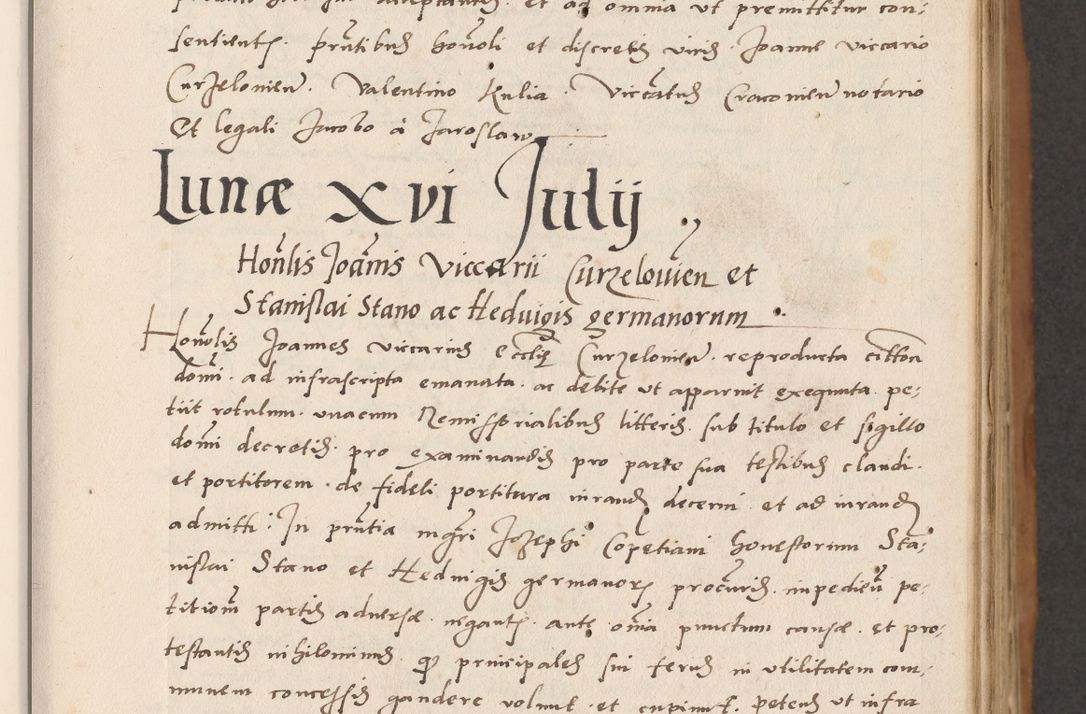 et ad omnia ut premittitur con-
sentient. pñtibus honoli et discretis viris Joanne viccario
Curzelouien. Valentino Kulia. Viccatus Cracouien notario
Et legali Jacobo à Jaroslaw
Lunæ XVI Julij
Hoñlis Joañis Viccarii Curzelouien et
Stanislai Stano ac Heduigis germanorum
Honolis Joannes viccarius eccliæ Curzelouien. reproducta
domi. ad infrascripta emanata. ac debite ut apparuit exequuta. pe-
tiit rotulum. unacum Remissorialibus litteris. sub titulo et sigillo
domi decretis. pro examinandis pro parte sua testibus claudi.
et portitorem. de fideli portitura iurandum decerni. et ad iurandum
admitti: In pñtia mgri Jozephi Copetiani honestorum Sta-
nislai Stano et Heduigis germanorum procuris. impedien pe-
titiom partis aduersæ. negantis. ante omia punctum causæ. et pro-
testantis nihilominus. principales sui ferius in utilitatem com-
munem concessis gaudere volunt. et cupiunt. petens ut infra